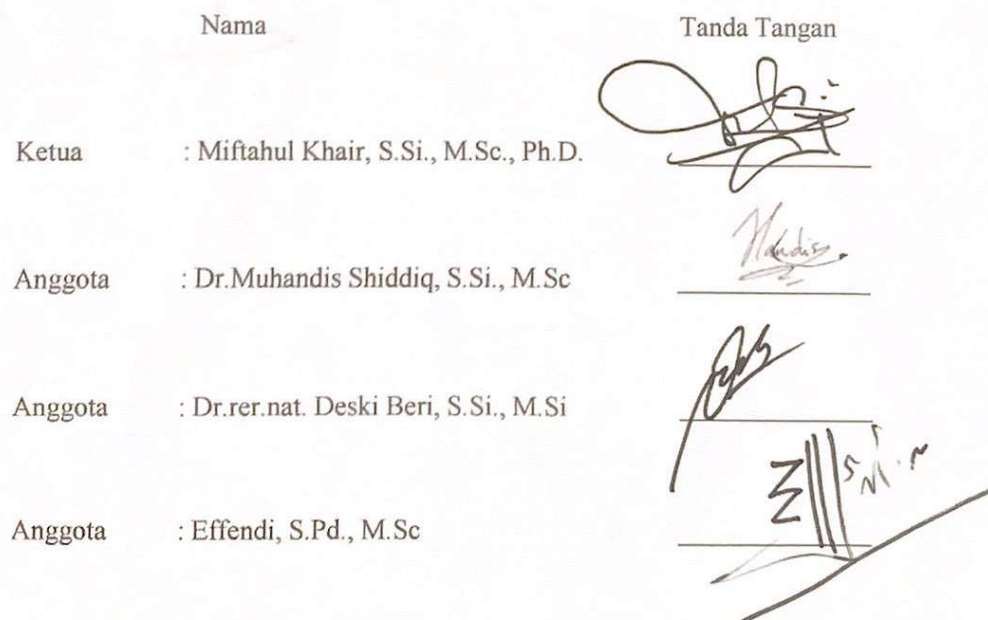 Nama Tanda Tangan
Ketua : Miftahul Khair, S.Si., M.Sc., Ph.D.
Anggota : Dr.Muhandis Shiddiq, S.Si., M.Sc
Anggota : Dr.rer.nat. Deski Beri, S.Si., M.Si
Anggota : Effendi, S.Pd., M.Sc